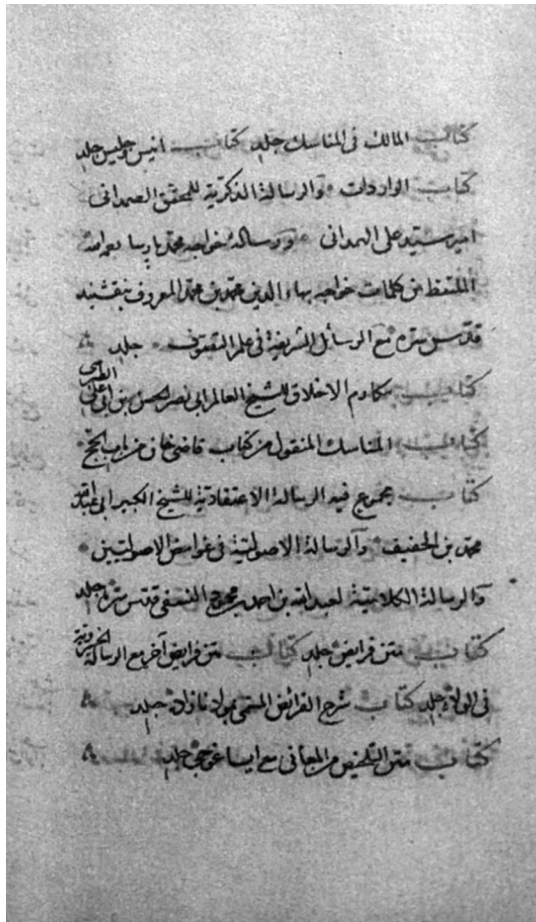 كتاب المالك فى المناسك جلد كتاب انيس وجليس جلد
كتاب الواردات والرسالة الذكرية للمحقق الصمدانى
امير سيد على الهمدانى ورسالة خواجه محمد پارسا
الملتقط من كلمات خواجه بهاء الدين محمد بن محمد المعروف بنقشبند
قدس سره مع الرسائل الشريفة فى علم التصوف جلد
كتاب مكارم الاخلاق للشيخ العالم ابى نصر الحسن بن ابى على الطبرسى
كتاب المناسك المنقول من كتاب قاضى خان من باب الحج
كتاب مجموع فيه الرسالة الاعتقادية للشيخ الكبير ابى عبد الله
محمد بن الخفيف والرسالة الاصولية فى غوامض الاصوليين
والرسالة الكلامية لعبد الله بن احمد بن محمود النسفى قدس سره جلد
كتاب متن فرايض جلد كتاب متن فرايض آخر مع الرسالة
فى الولاء جلد كتاب شرح الفرائض المسمى جلد
كتاب متن التلخيص من المعانى مع ايساغوجى جلد